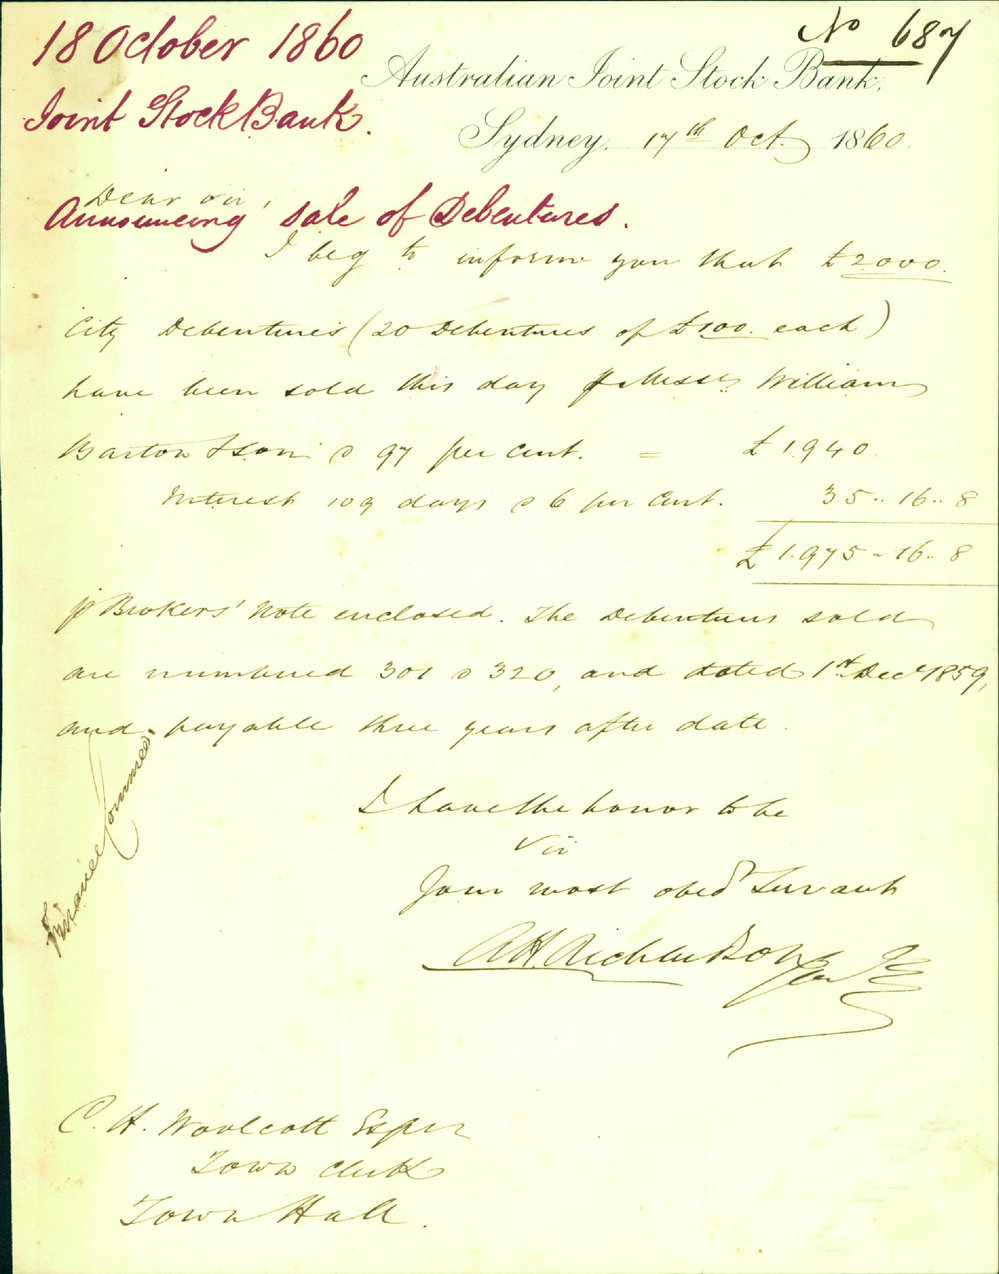 18 October 1860
No 687
Joint Stock Bank.
Australian Joint Stock Bank,
Sydney, 17th Oct. 1860.
Dear Sir,
Announcing sale of Debentures.
I beg to inform you that £2000.
City Debentures (20 Debentures of £100. each)
have been sold this day p Messrs William
Barton & Son @ 97 per cent. = £1940.
Interest 109 days @ 6 per cent. 35..16..8
£1.975-16..8
p Brokers' Note enclosed. The Debentures sold
are numbered 301 @ 320, and dated 1st Decr 1859,
and payable three years after date.
Finance Commee.
I have the honor to be
Sir
Your most obedt Servant
A H Richardson
C. H. Woolcott Esqr
Town Clerk
Town Hall.